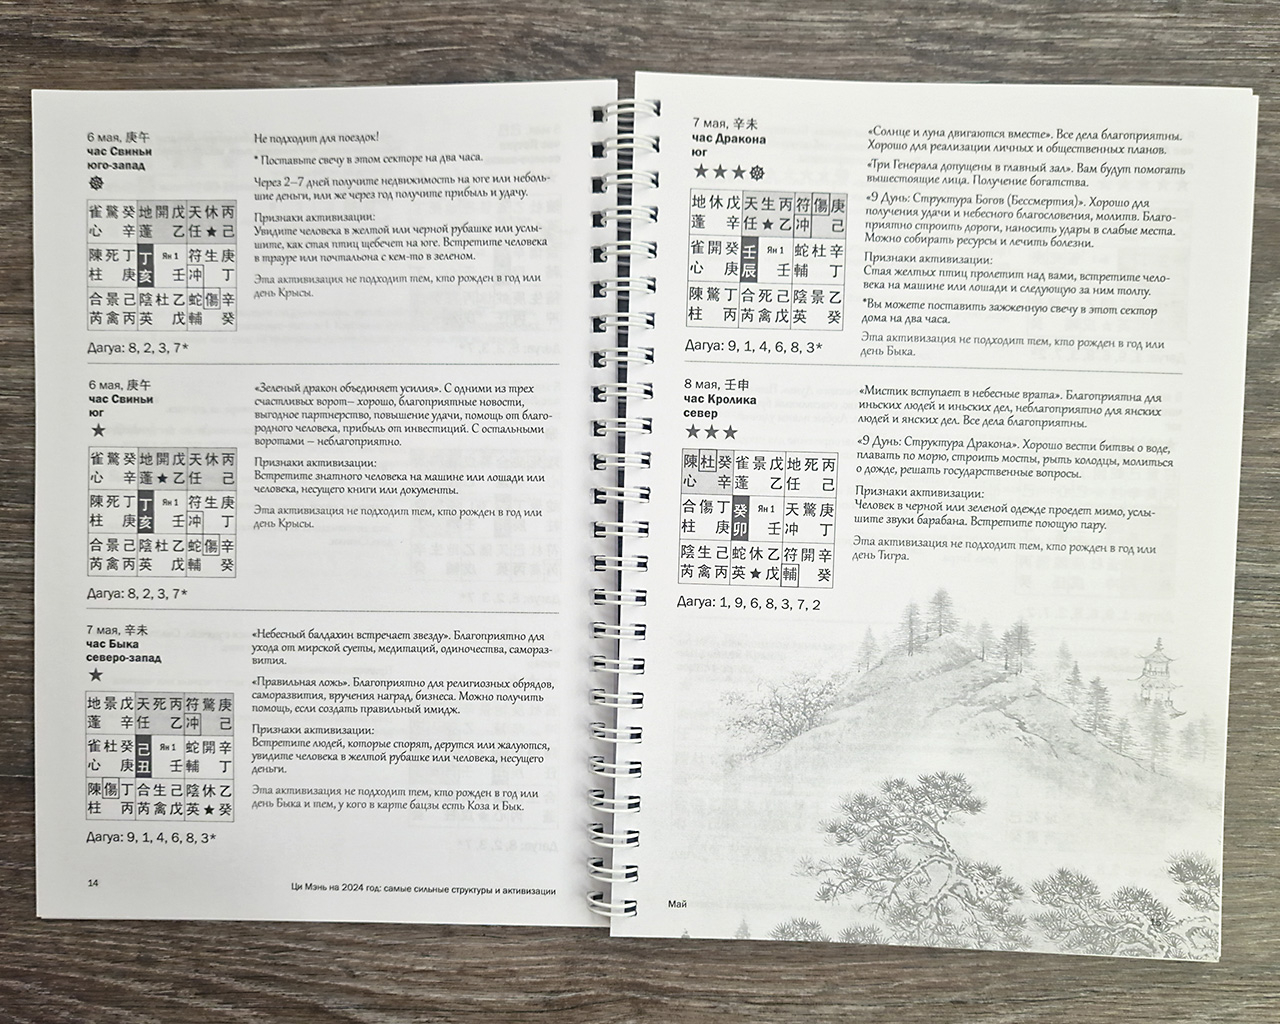 6 мая, 庚午
час Свиньи
юго-запад
雀驚癸 地開戊 天休丙
心 辛 蓬 乙 任★己
陳死丁 丁 Ян 1 符生庚
柱 庚 亥 壬 冲 丁
合景己 陰杜乙 蛇傷辛
芮禽丙 英 戊 輔 癸
Дагуа: 8, 2, 3, 7*
Не подходит для поездок!
* Поставьте свечу в этом секторе на два часа.
Через 2–7 дней получите недвижимость на юге или неболь-
шие деньги, или же через год получите прибыль и удачу.
Признаки активизации:
Увидите человека в желтой или черной рубашке или услы-
шите, как стая птиц щебечет на юге. Встретите человека
в трауре или почтальона с кем-то в зеленом.
Эта активизация не подходит тем, кто рожден в год или
день Крысы.
6 мая, 庚午
час Свиньи
юг
★
雀驚癸 地開戊 天休丙
心 辛 蓬★乙 任 己
陳死丁 丁 Ян 1 符生庚
柱 庚 亥 壬 冲 丁
合景己 陰杜乙 蛇傷辛
芮禽丙 英 戊 輔 癸
Дагуа: 8, 2, 3, 7*
«Зеленый дракон объединяет усилия». С одними из трех
счастливых ворот– хорошо, благоприятные новости,
выгодное партнерство, повышение удачи, помощь от благо-
родного человека, прибыль от инвестиций. С остальными
воротами – неблагоприятно.
Признаки активизации:
Встретите знатного человека на машине или лошади или
человека, несущего книги или документы.
Эта активизация не подходит тем, кто рожден в год или
день Крысы.
7 мая, 辛未
час Быка
северо-запад
★
地景戊 天死丙 符驚庚
蓬 辛 任 乙 冲 己
雀杜癸 己 Ян 1 蛇開辛
心 庚 丑 壬 輔 丁
陳傷丁 合生己 陰休乙
柱 丙 芮禽戊 英★癸
Дагуа: 9, 1, 4, 6, 8, 3*
«Небесный балдахин встречает звезду». Благоприятно для
ухода от мирской суеты, медитаций, одиночества, самораз-
вития.
«Правильная ложь». Благоприятно для религиозных обрядов,
саморазвития, вручения наград, бизнеса. Можно получить
помощь, если создать правильный имидж.
Признаки активизации:
Встретите людей, которые спорят, дерутся или жалуются,
увидите человека в желтой рубашке или человека, несущего
деньги.
Эта активизация не подходит тем, кто рожден в год или
день Быка и тем, у кого в карте бацзы есть Коза и Бык.
14
Ци Мэнь на 2024 год: самые сильные структуры и активизации
7 мая, 辛未
час Дракона
юг
★★★
地休戊 天生丙 符傷庚
蓬 辛 任★乙 冲 己
雀開癸 壬 Ян 1 蛇杜辛
心 庚 辰 壬 輔 丁
陳驚丁 合死己 陰景乙
柱 丙 芮禽戊 英 癸
Дагуа: 9, 1, 4, 6, 8, 3*
«Солнце и луна двигаются вместе». Все дела благоприятны.
Хорошо для реализации личных и общественных планов.
«Три Генерала допущены в главный зал». Вам будут помогать
вышестоящие лица. Получение богатства.
«9 Дунь: Структура Богов (Бессмертия)». Хорошо для
получения удачи и небесного благословения, молитв. Благо-
приятно строить дороги, наносить удары в слабые места.
Можно собирать ресурсы и лечить болезни.
Признаки активизации:
Стая желтых птиц пролетит над вами, встретите чело-
века на машине или лошади и следующую за ним толпу.
*Вы можете поставить зажженную свечу в этот сектор
дома на два часа.
Эта активизация не подходит тем, кто рожден в год или
день Быка.
8 мая, 壬申
час Кролика
север
★★★
陳杜癸 雀景戊 地死丙
心 辛 蓬 乙 任 己
合傷丁 癸 Ян 1 天驚庚
柱 庚 卯 壬 冲 丁
陰生己 蛇休乙 符開辛
芮禽丙 英★戊 輔 癸
Дагуа: 1, 9, 6, 8, 3, 7, 2
«Мистик вступает в небесные врата». Благоприятна для
иньских людей и иньских дел, неблагоприятно для янских
людей и янских дел. Все дела благоприятны.
«9 Дунь: Структура Дракона». Хорошо вести битвы о воде,
плавать по морю, строить мосты, рыть колодцы, молиться
о дожде, решать государственные вопросы.
Признаки активизации:
Человек в черной или зеленой одежде проедет мимо, услы-
шите звуки барабана. Встретите поющую пару.
Эта активизация не подходит тем, кто рожден в год или
день Тигра.
Май